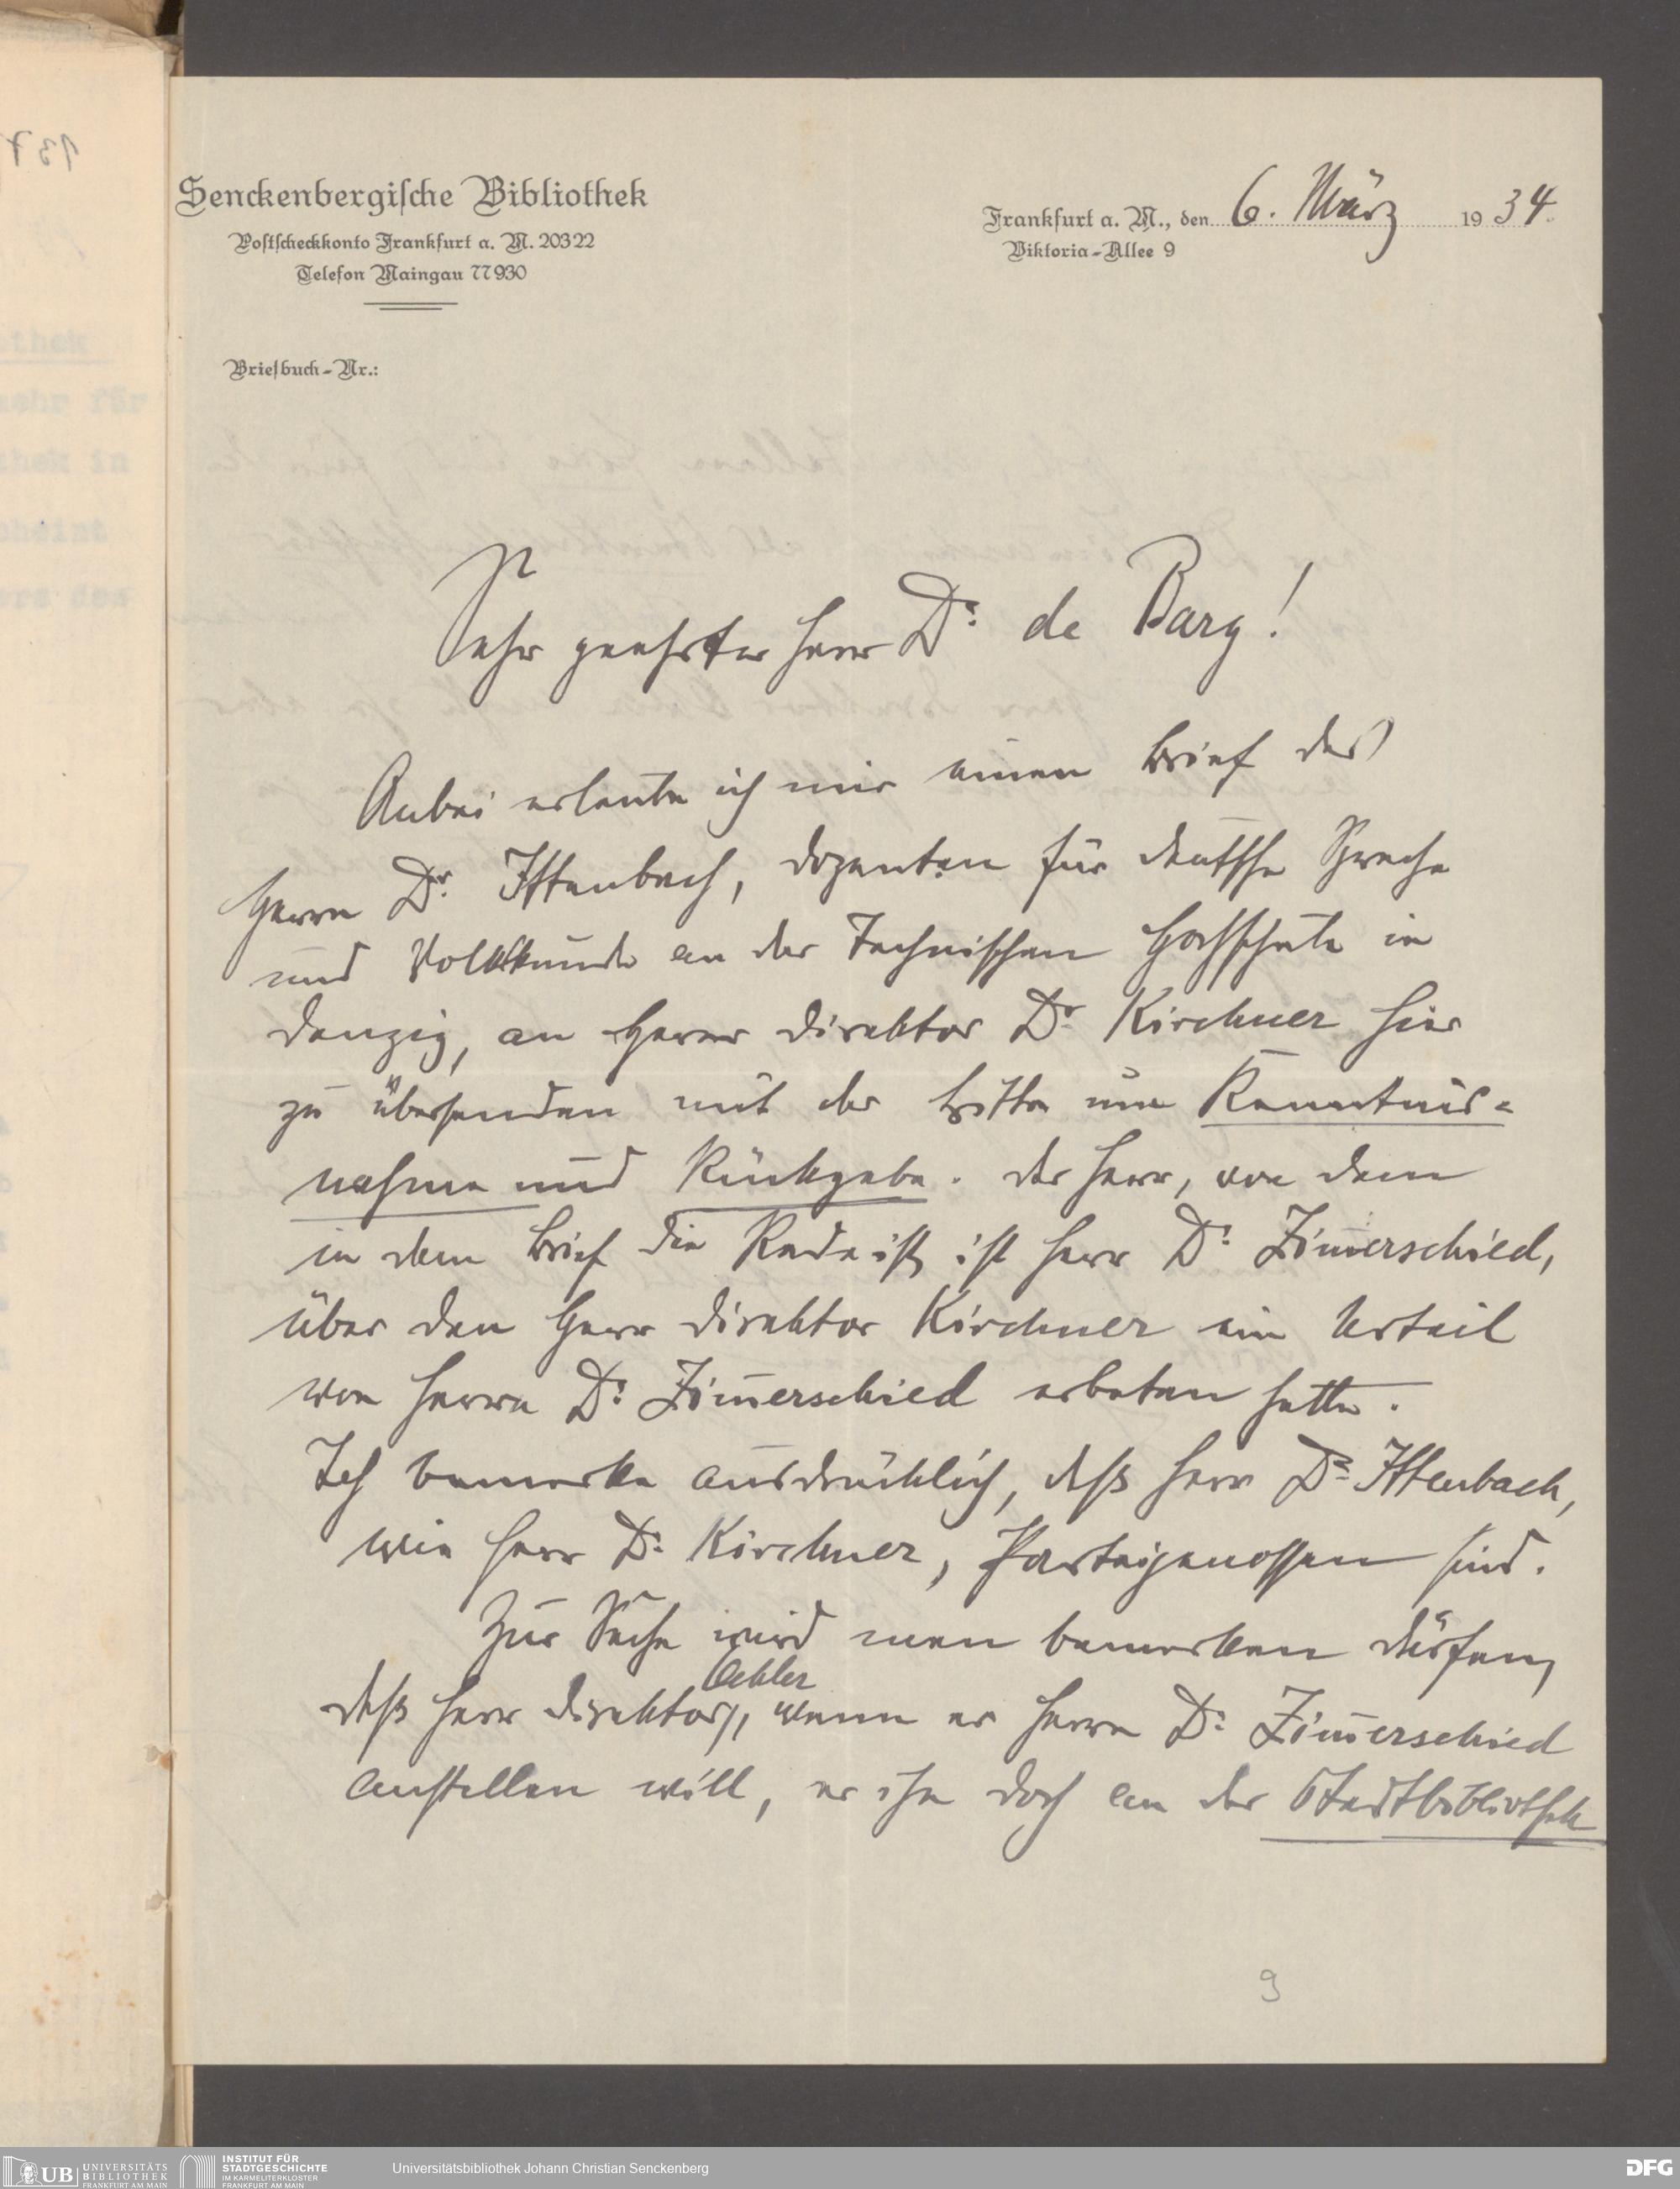 Senckenbergische Bibliothek
Postscheckkonto Frankfurt a. M. 20322
Telefon Maingau 77930
Frankfurt a. M., den 6. März 1934.
Viktoria-Allee 9
Briefbuch-Nr.:
Sehr geehrter Herr Dr. de Bary!
Anbei erlaube ich mir einen Brief des
Herrn Dr. Ittenbach, Dozenten für deutsche Sprache
und Volkskunde an der Technischen Hochschule in
Danzig, an Herrn Direktor Dr. Kirchner hier
zu übersenden mit der Bitte um Kenntnis=
nahme und Rückgabe. Der Herr, von dem
in dem Brief die Rede ist, ist Herr Dr. Zim̄erschied,
über den Herr Direktor Kirchner ein Urteil
von Herrn Dr. Zim̄erschied erbeten hatte.
Ich bemerke ausdrücklich, daß Herr Dr. Ittenbach,
wie Herr Dr. Kirchner, Parteigenossen sind.
Zur Sache wird man bemerken dürfen,
daß Herr Direktor Oehler, wenn er Herrn Dr. Zim̄erschied
anstellen will, er ihn doch an der Stadtbibliothek
9
UB UNIVERSITÄTS
BIBLIOTHEK
FRANKFURT AM MAIN
INSTITUT FÜR
STADTGESCHICHTE
IM KARMELITERKLOSTER
FRANKFURT AM MAIN
Universitätsbibliothek Johann Christian Senckenberg
DFG